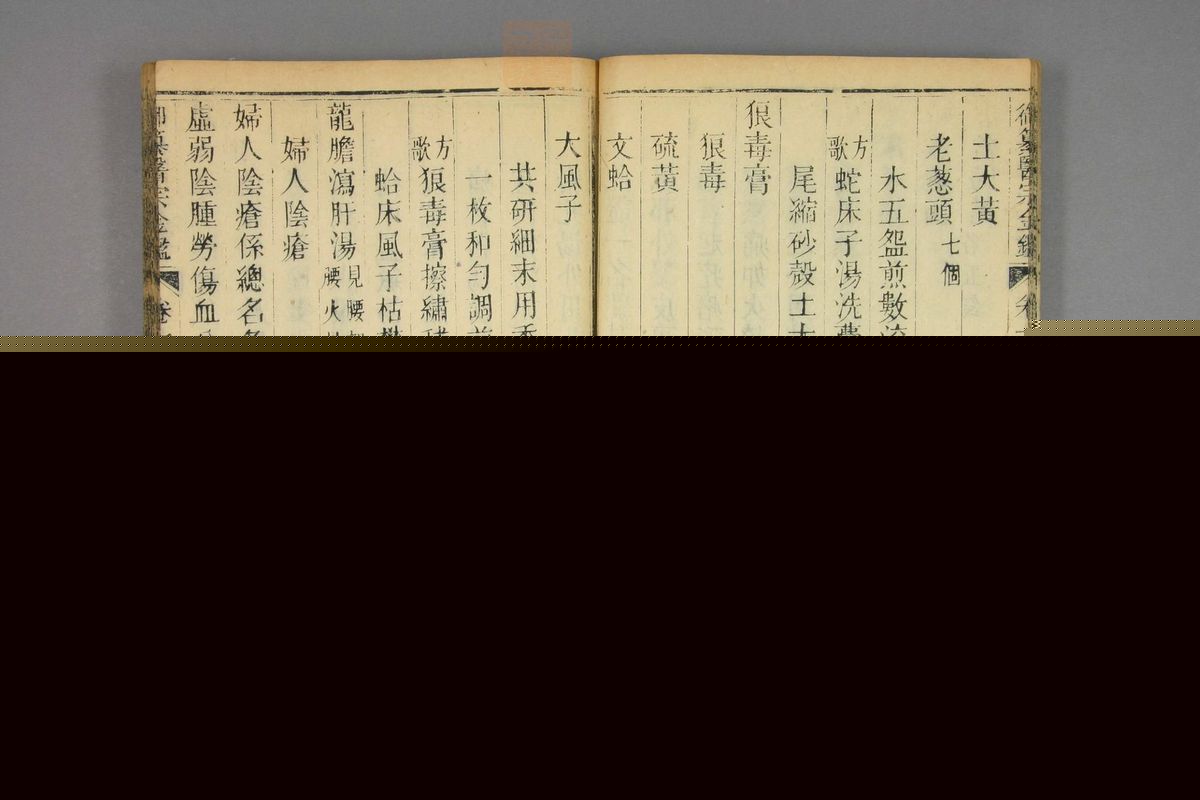 御纂醫宗金鑑
土大黃
老葱頭 七個
水五盌煎數
方歌 蛇床子湯洗
尾縮砂殼土
狼毒膏
狼毒
硫黃
文蛤
大風子
共研細末用
一枚和勻調
方歌 狼毒膏擦繡
蛤床風子枯
龍膽瀉肝湯 見腰 腰火
婦人陰瘡
婦人陰瘡係總名
虛弱陰腫勞傷血
御纂醫宗金鑑 卷